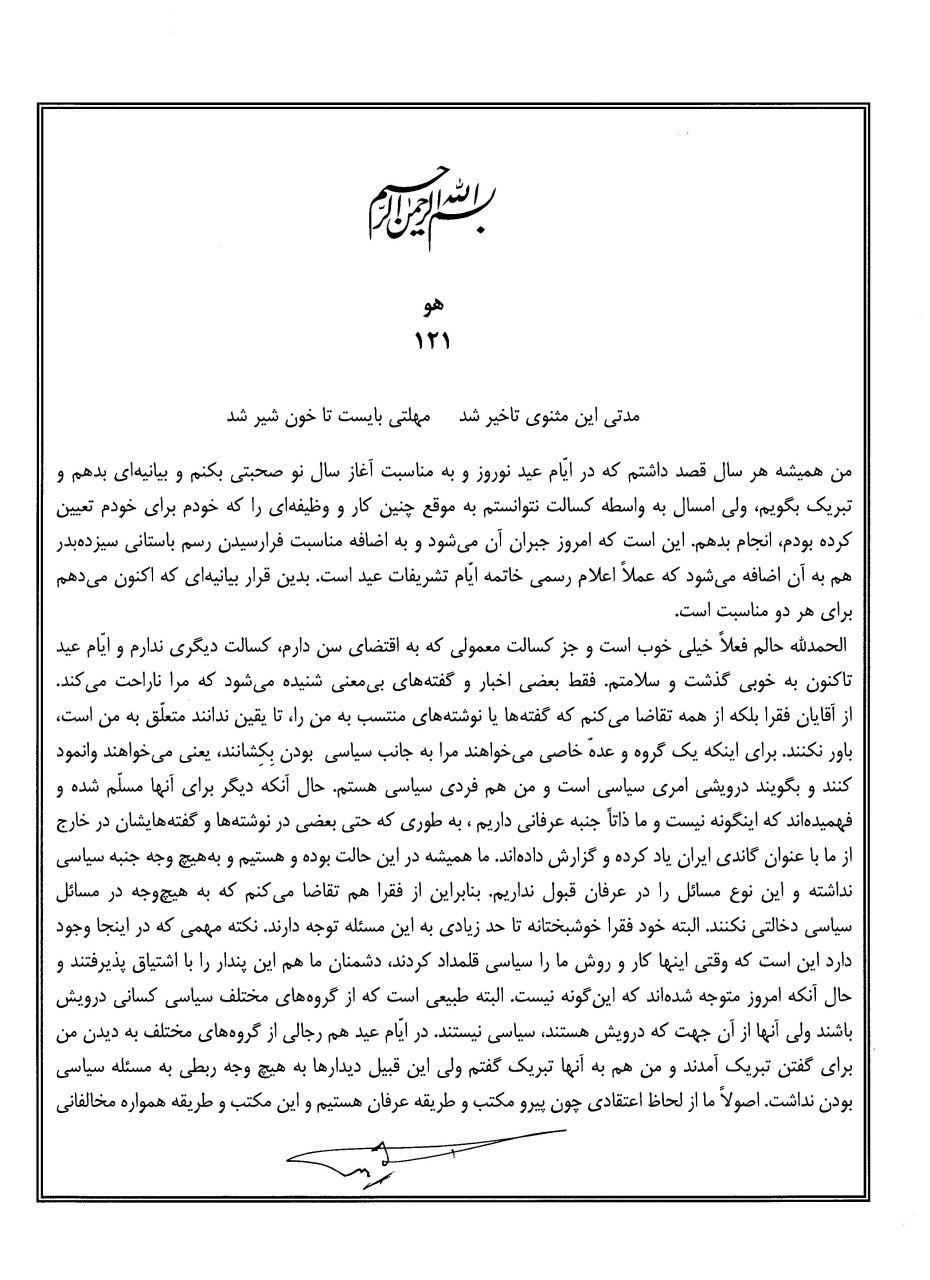 بسم الله الرحمن الرحیم
هو
۱۲۱
مدتی این مثنوی تاخیر شد مهلتی بایست تا خون شیر شد
من همیشه هر سال قصد داشتم که در ایّام عید نوروز و به مناسبت آغاز سال نو صحبتی بکنم و بیانیه‌ای بدهم و
تبریک بگویم، ولی امسال به واسطه کسالت نتوانستم به موقع چنین کار و وظیفه‌ای را که خودم برای خودم تعیین
کرده بودم، انجام بدهم. این است که امروز جبران آن می‌شود و به اضافه مناسبت فرارسیدن رسم باستانی سیزده‌بدر
هم به آن اضافه می‌شود که عملاً اعلام رسمی خاتمه ایّام تشریفات عید است. بدین قرار بیانیه‌ای که اکنون می‌دهم
برای هر دو مناسبت است.
الحمدلله حالم فعلاً خیلی خوب است و جز کسالت معمولی که به اقتضای سن دارم، کسالت دیگری ندارم و ایّام عید
تاکنون به خوبی گذشت و سلامتم. فقط بعضی اخبار و گفته‌های بی‌معنی شنیده می‌شود که مرا ناراحت می‌کند.
از آقایان فقرا بلکه از همه تقاضا می‌کنم که گفته‌ها یا نوشته‌های منتسب به من را، تا یقین ندانند متعلّق به من است،
باور نکنند. برای اینکه یک گروه و عدهّ خاصی می‌خواهند مرا به جانب سیاسی بودن بِکِشانند، یعنی می‌خواهند وانمود
کنند و بگویند درویشی امری سیاسی است و من هم فردی سیاسی هستم. حال آنکه دیگر برای آنها مسلّم شده و
فهمیده‌اند که اینگونه نیست و ما ذاتاً جنبه عرفانی داریم ، به طوری که حتی بعضی در نوشته‌ها و گفته‌هایشان در خارج
از ما با عنوان گاندی ایران یاد کرده و گزارش داده‌اند. ما همیشه در این حالت بوده و هستیم و به‌هیچ وجه جنبه سیاسی
نداشته و این نوع مسائل را در عرفان قبول نداریم. بنابراین از فقرا هم تقاضا می‌کنم که به هیچ‌وجه در مسائل
سیاسی دخالتی نکنند. البته خود فقرا خوشبختانه تا حد زیادی به این مسئله توجه دارند. نکته مهمی که در اینجا وجود
دارد این است که وقتی اینها کار و روش ما را سیاسی قلمداد کردند، دشمنان ما هم این پندار را با اشتیاق پذیرفتند و
حال آنکه امروز متوجه شده‌اند که این‌گونه نیست. البته طبیعی است که از گروه‌های مختلف سیاسی کسانی درویش
باشند ولی آنها از آن جهت که درویش هستند، سیاسی نیستند. در ایّام عید هم رجالی از گروه‌های مختلف به دیدن من
برای گفتن تبریک آمدند و من هم به آنها تبریک گفتم ولی این قبیل دیدارها به هیچ وجه ربطی به مسئله سیاسی
بودن نداشت. اصولاً ما از لحاظ اعتقادی چون پیرو مکتب و طریقه عرفان هستیم و این مکتب و طریقه همواره مخالفانی